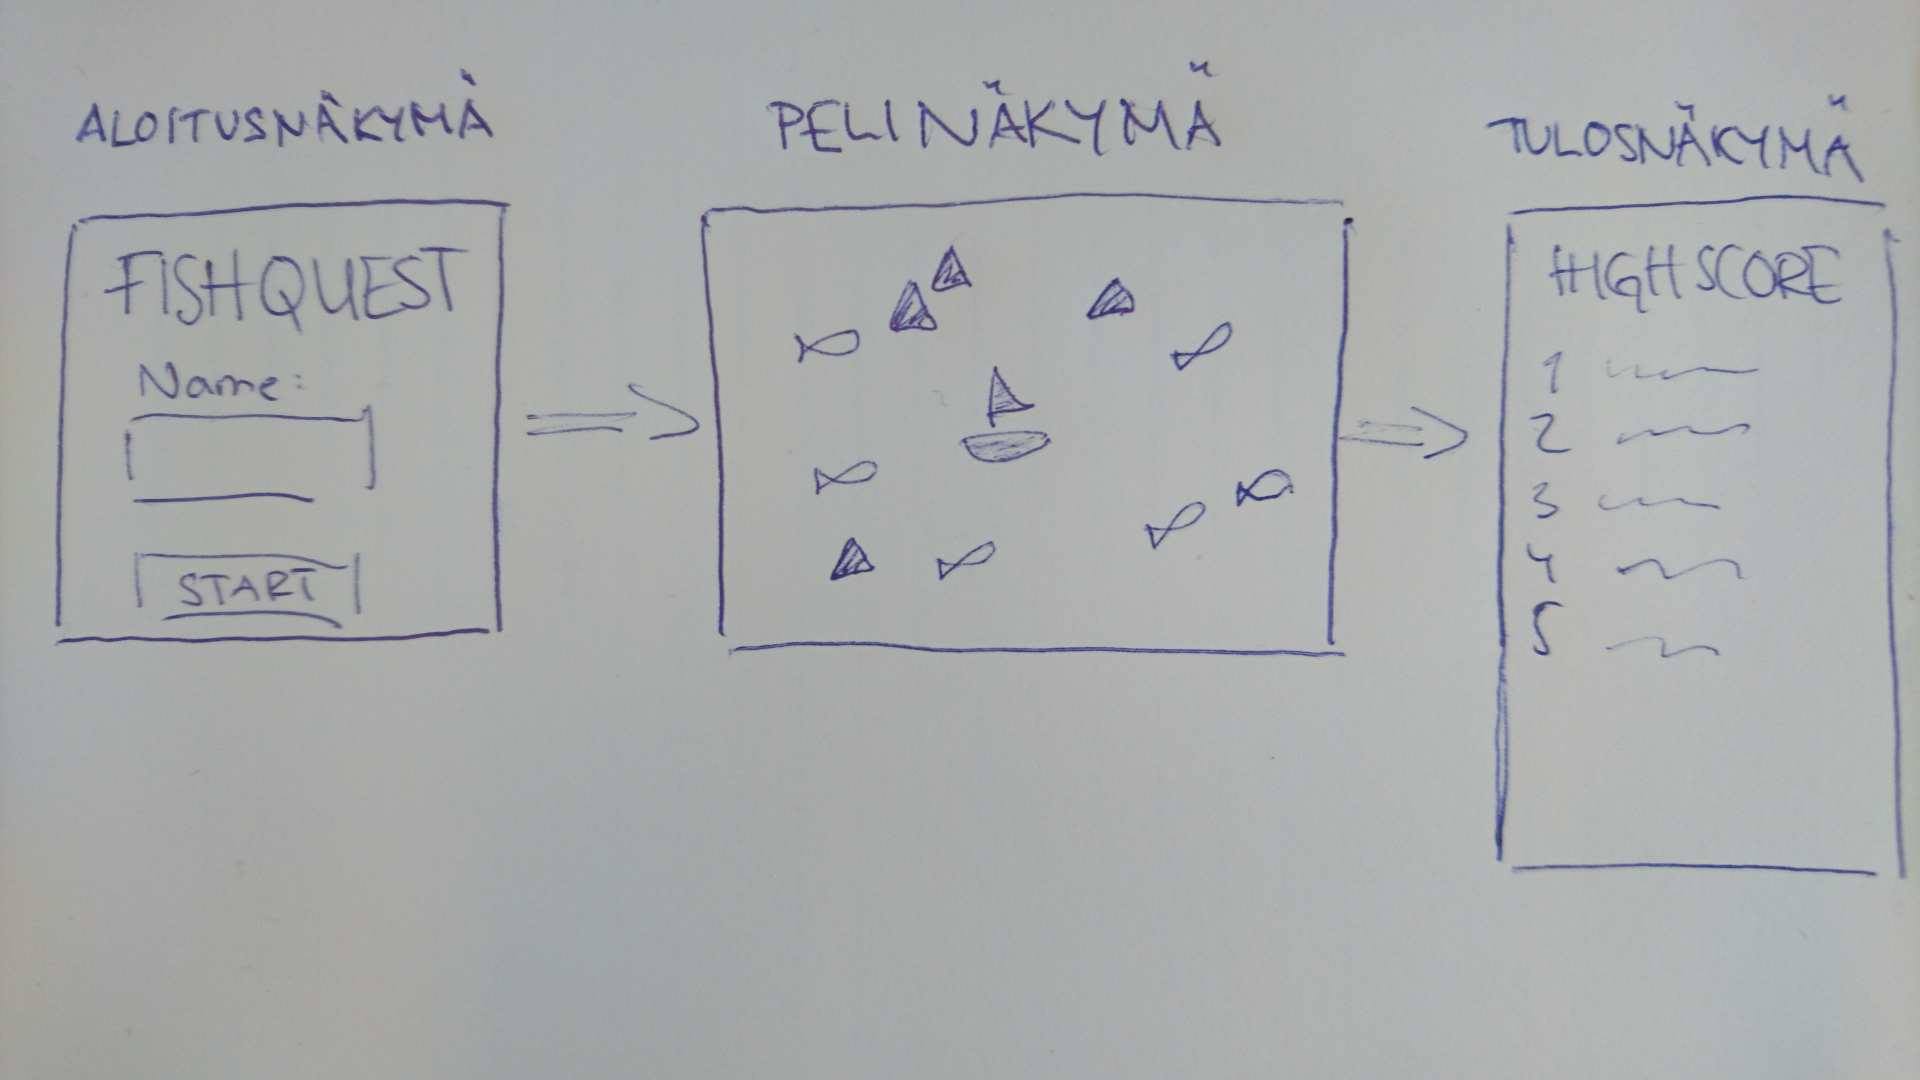 ALOITUSNÄKYMÄ
FISHQUEST
Name:
START
PELINÄKYMÄ
TULOSNÄKYMÄ
HIGHSCORE
1
2
3
4
5